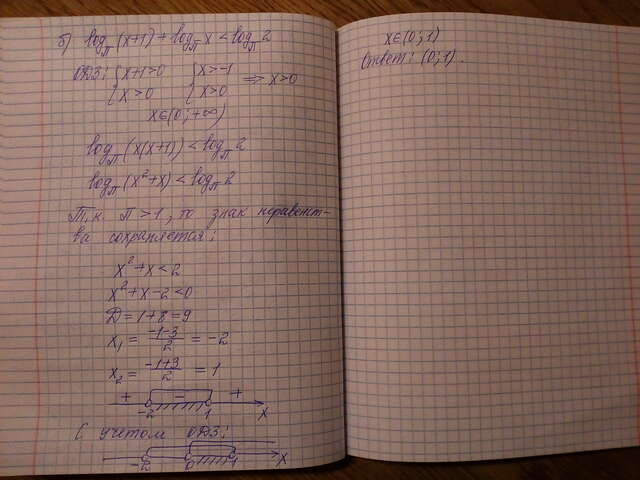 б) log_π (x+1) + log_π x < log_π 2
ОДЗ: { x+1>0 { x>-1 => x>0
{ x>0 { x>0
x∈(0; +∞)
log_π (x(x+1)) < log_π 2
log_π (x²+x) < log_π 2
Т.к. π >1, то знак неравенст-
ва сохраняется:
x²+x<2
x²+x-2<0
D=1+8=9
x₁ = (-1-3)/2 = -2
x₂ = (-1+3)/2 = 1
+ - +
-2 1 x
С учетом ОДЗ:
-2 0 1 x
x∈(0;1)
Ответ: (0;1).